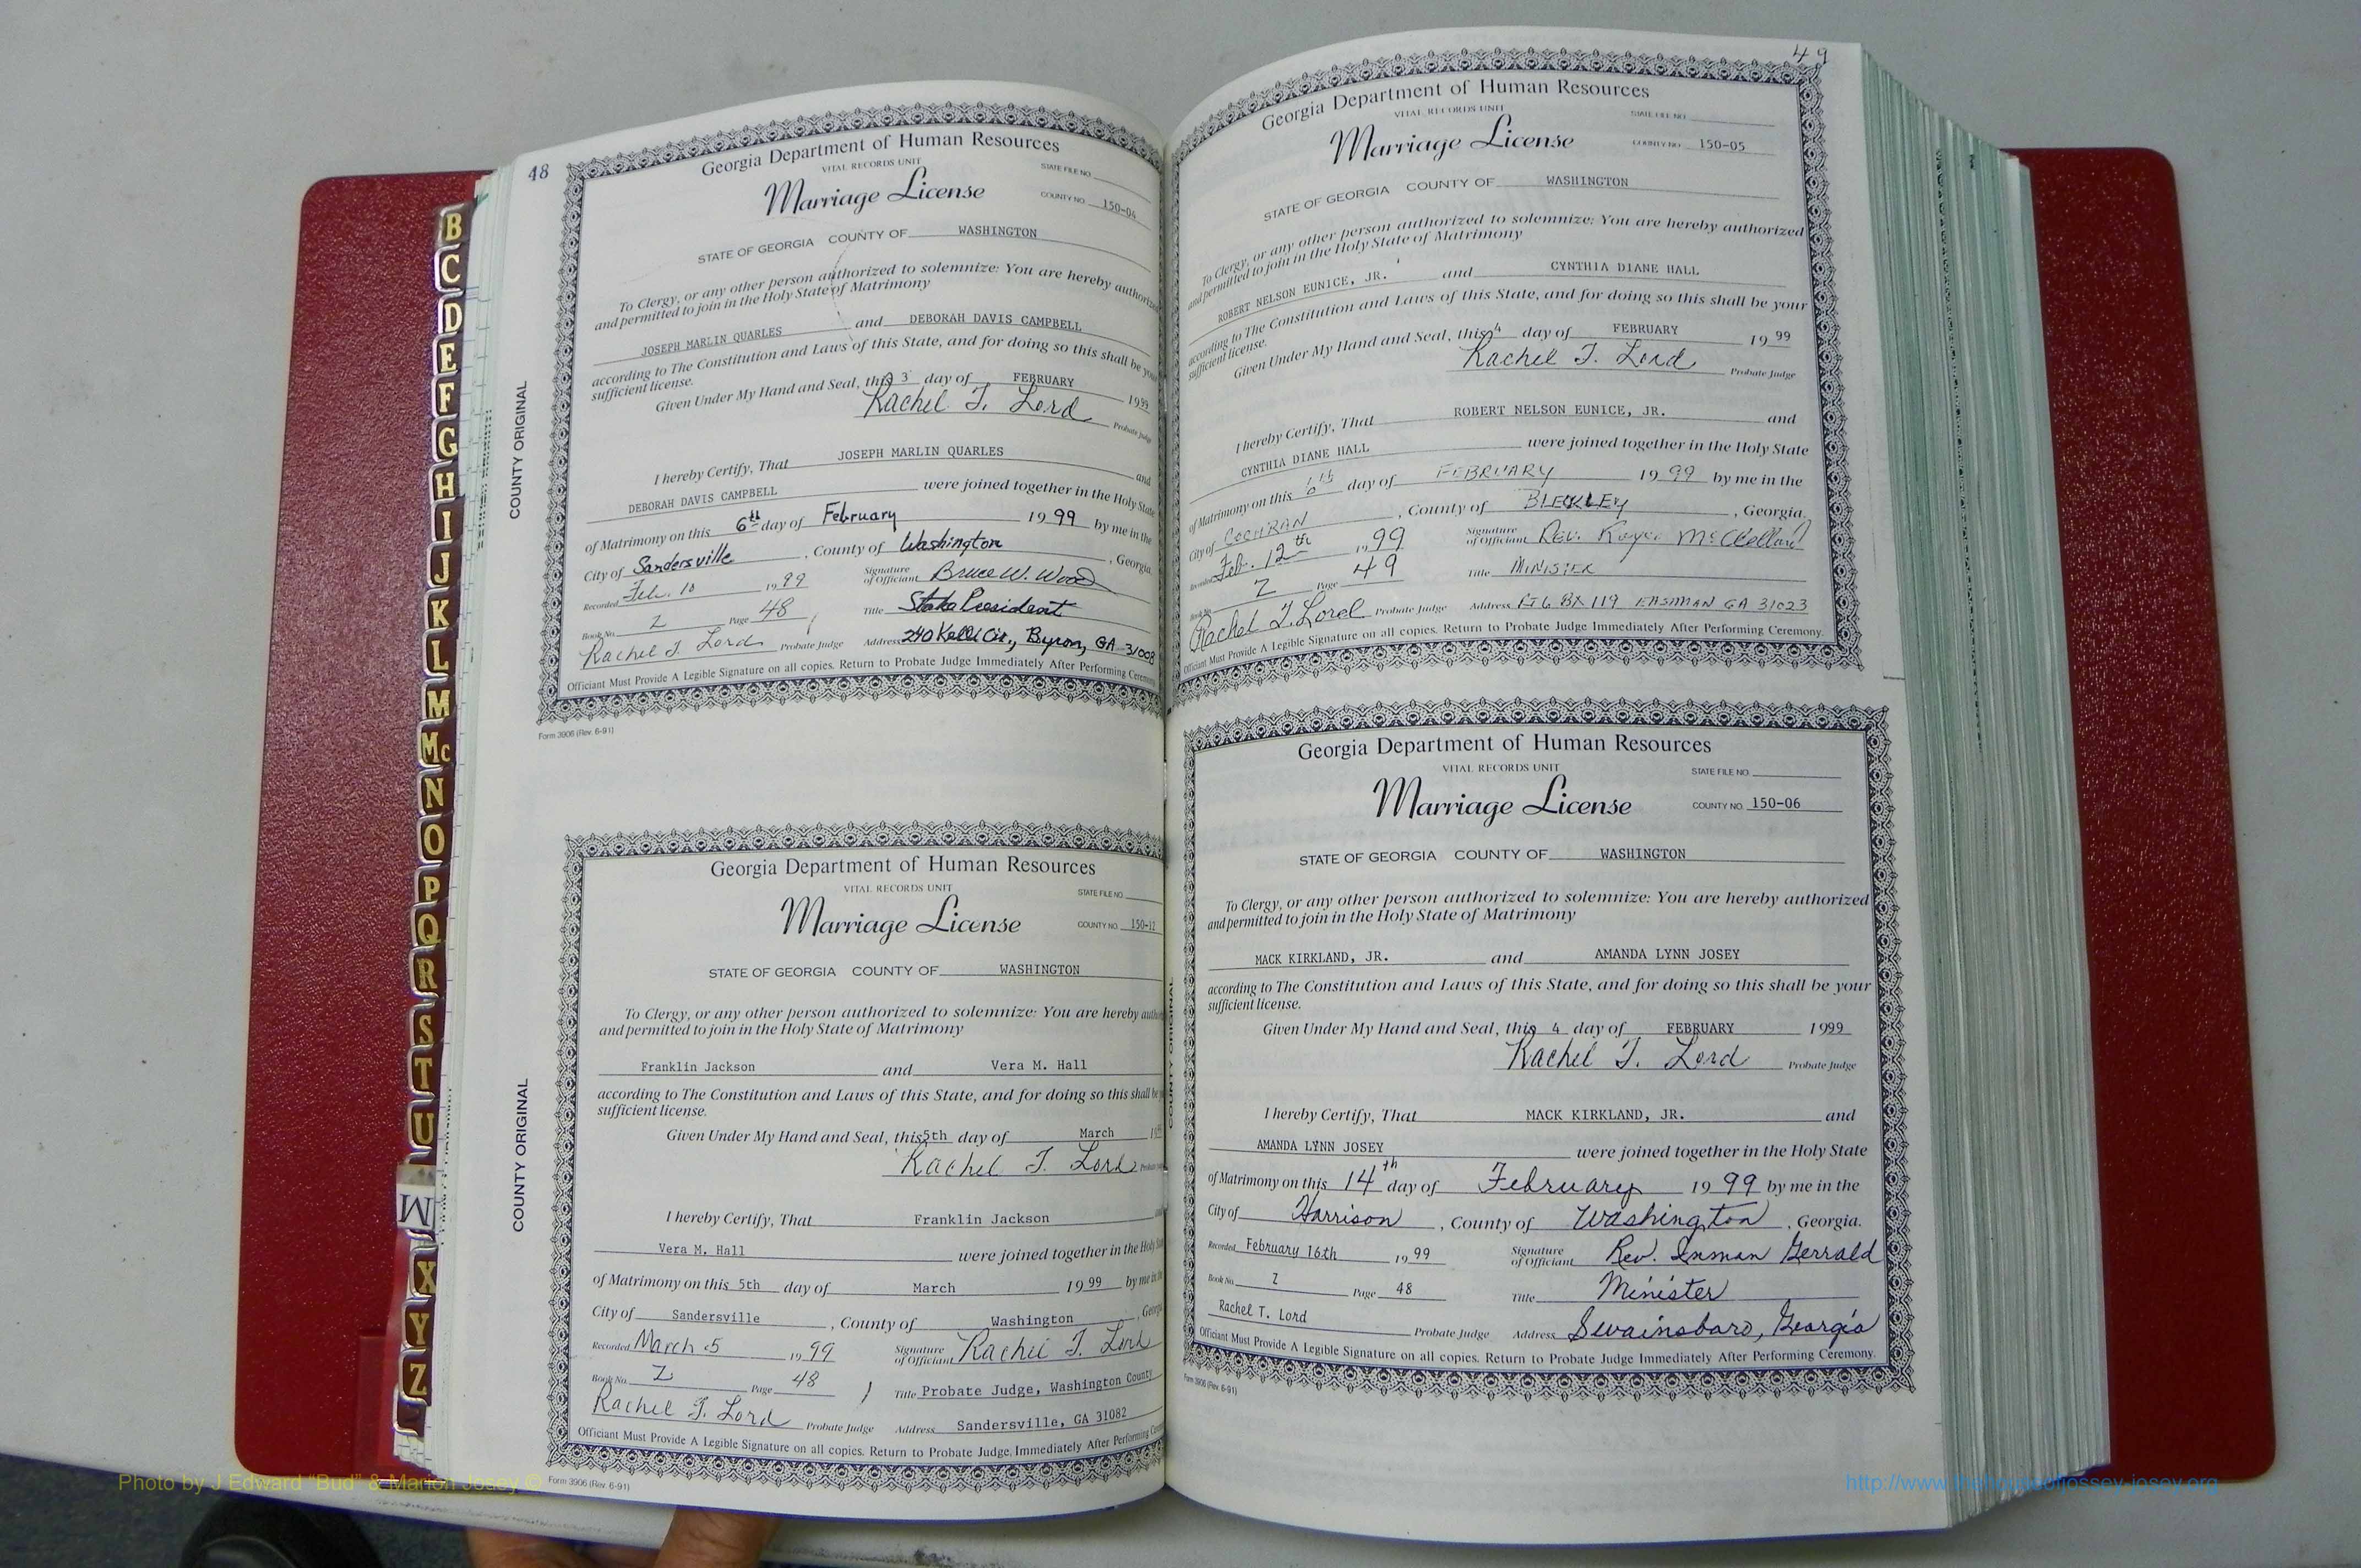 48
COUNTY ORIGINAL
Georgia Department of Human Resources
VITAL RECORDS UNIT
STATE FILE NO.
Marriage License
COUNTY NO. 150-04
STATE OF GEORGIA COUNTY OF WASHINGTON
To Clergy, or any other person authorized to solemnize: You are hereby
and permitted to join in the Holy State of Matrimony
JOSEPH MARLIN QUARLES and DEBORAH DAVIS CAMPBELL
according to The Constitution and Laws of this State, and for doing so this shall be
sufficient license.
Given Under My Hand and Seal, this 3 day of FEBRUARY 1999
Rachel T. Lord Probate Judge
I hereby Certify, That JOSEPH MARLIN QUARLES and
DEBORAH DAVIS CAMPBELL were joined together in the Holy State
of Matrimony on this 6th day of February 1999 by me in the
City of Sandersville, County of Washington, Georgia.
Recorded Feb. 10 1999 Signature of Officiant Bruce W. Wood
Book No. Z Page 48 Title Stake President
Rachel T. Lord Probate Judge Address 240 Cir., Byron, GA 31008
Officiant Must Provide A Legible Signature on all copies. Return to Probate Judge Immediately After Performing
Form 3906 (Rev. 6-91)
COUNTY ORIGINAL
Georgia Department of Human Resources
VITAL RECORDS UNIT
STATE FILE NO.
Marriage License
COUNTY NO. 150-12
STATE OF GEORGIA COUNTY OF WASHINGTON
To Clergy, or any other person authorized to solemnize: You are hereby
and permitted to join in the Holy State of Matrimony
Franklin Jackson and Vera M. Hall
according to The Constitution and Laws of this State, and for doing so this shall be
sufficient license.
Given Under My Hand and Seal, this 5th day of March
Rachel T. Lord
I hereby Certify, That Franklin Jackson
Vera M. Hall were joined together in the Holy
of Matrimony on this 5th day of March 1999 by me in the
City of Sandersville, County of Washington, Georgia
Recorded March 5 1999 Signature of Officiant Rachel T. Lord
Book No. Z Page 48 Title Probate Judge, Washington County
Rachel T. Lord Probate Judge Address Sandersville, GA 31082
Officiant Must Provide A Legible Signature on all copies. Return to Probate Judge Immediately After Performing
Form 3906 (Rev. 6-91)
49
Georgia Department of Human Resources
VITAL RECORDS UNIT
STATE FILE NO.
Marriage License
COUNTY NO. 150-05
STATE OF GEORGIA COUNTY OF WASHINGTON
To Clergy, or any other person authorized to solemnize: You are hereby authorized
and permitted to join in the Holy State of Matrimony
ROBERT NELSON EUNICE, JR. and CYNTHIA DIANE HALL
according to The Constitution and Laws of this State, and for doing so this shall be your
sufficient license.
Given Under My Hand and Seal, this 4 day of FEBRUARY 1999
Rachel T. Lord Probate Judge
I hereby Certify, That ROBERT NELSON EUNICE, JR. and
CYNTHIA DIANE HALL were joined together in the Holy State
of Matrimony on this 6th day of FEBRUARY 1999 by me in the
City of COCHRAN, County of BLECKLEY, Georgia.
Recorded Feb. 12th 1999 Signature of Officiant Rev.
Book No. Z Page 49 Title MINISTER
Rachel T. Lord Probate Judge Address Rt 6 BX 119 EASTMAN GA 31023
Officiant Must Provide A Legible Signature on all copies. Return to Probate Judge Immediately After Performing Ceremony.
COUNTY ORIGINAL
Georgia Department of Human Resources
VITAL RECORDS UNIT
STATE FILE NO.
Marriage License
COUNTY NO. 150-06
STATE OF GEORGIA COUNTY OF WASHINGTON
To Clergy, or any other person authorized to solemnize: You are hereby authorized
and permitted to join in the Holy State of Matrimony
MACK KIRKLAND, JR. and AMANDA LYNN JOSEY
according to The Constitution and Laws of this State, and for doing so this shall be your
sufficient license.
Given Under My Hand and Seal, this 4 day of FEBRUARY 1999
Rachel T. Lord Probate Judge
I hereby Certify, That MACK KIRKLAND, JR. and
AMANDA LYNN JOSEY were joined together in the Holy State
of Matrimony on this 14th day of February 1999 by me in the
City of Harrison, County of Washington, Georgia.
Recorded February 16th 1999 Signature of Officiant Rev. Inman Gerrald
Book No. Z Page 48 Title Minister
Rachel T. Lord Probate Judge Address Swainsboro, Georgia
Officiant Must Provide A Legible Signature on all copies. Return to Probate Judge Immediately After Performing Ceremony.
Form 3906 (Rev. 6-91)
B
C
D
E
F
G
H
I
J
K
L
M
Mc
N
O
P
Q
R
S
T
U
M
X
Y
Z
Photo by J Edward "Bud" & Marion Josey ©
http://www.thehouseofjossey-josey.org